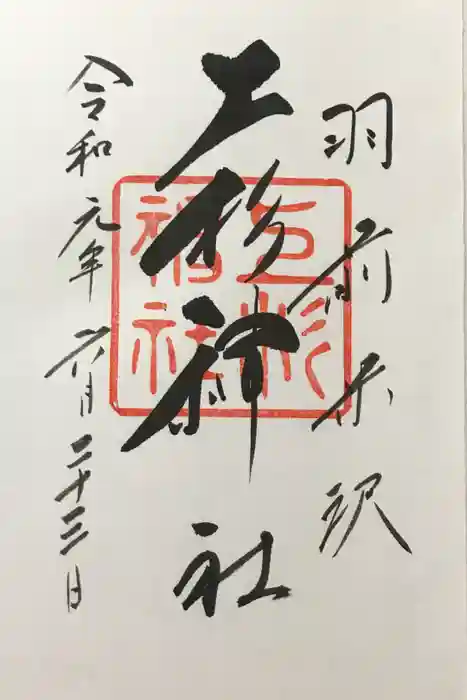 羽前米沢
上杉神社
上杉神社
令和元年六月二十三日